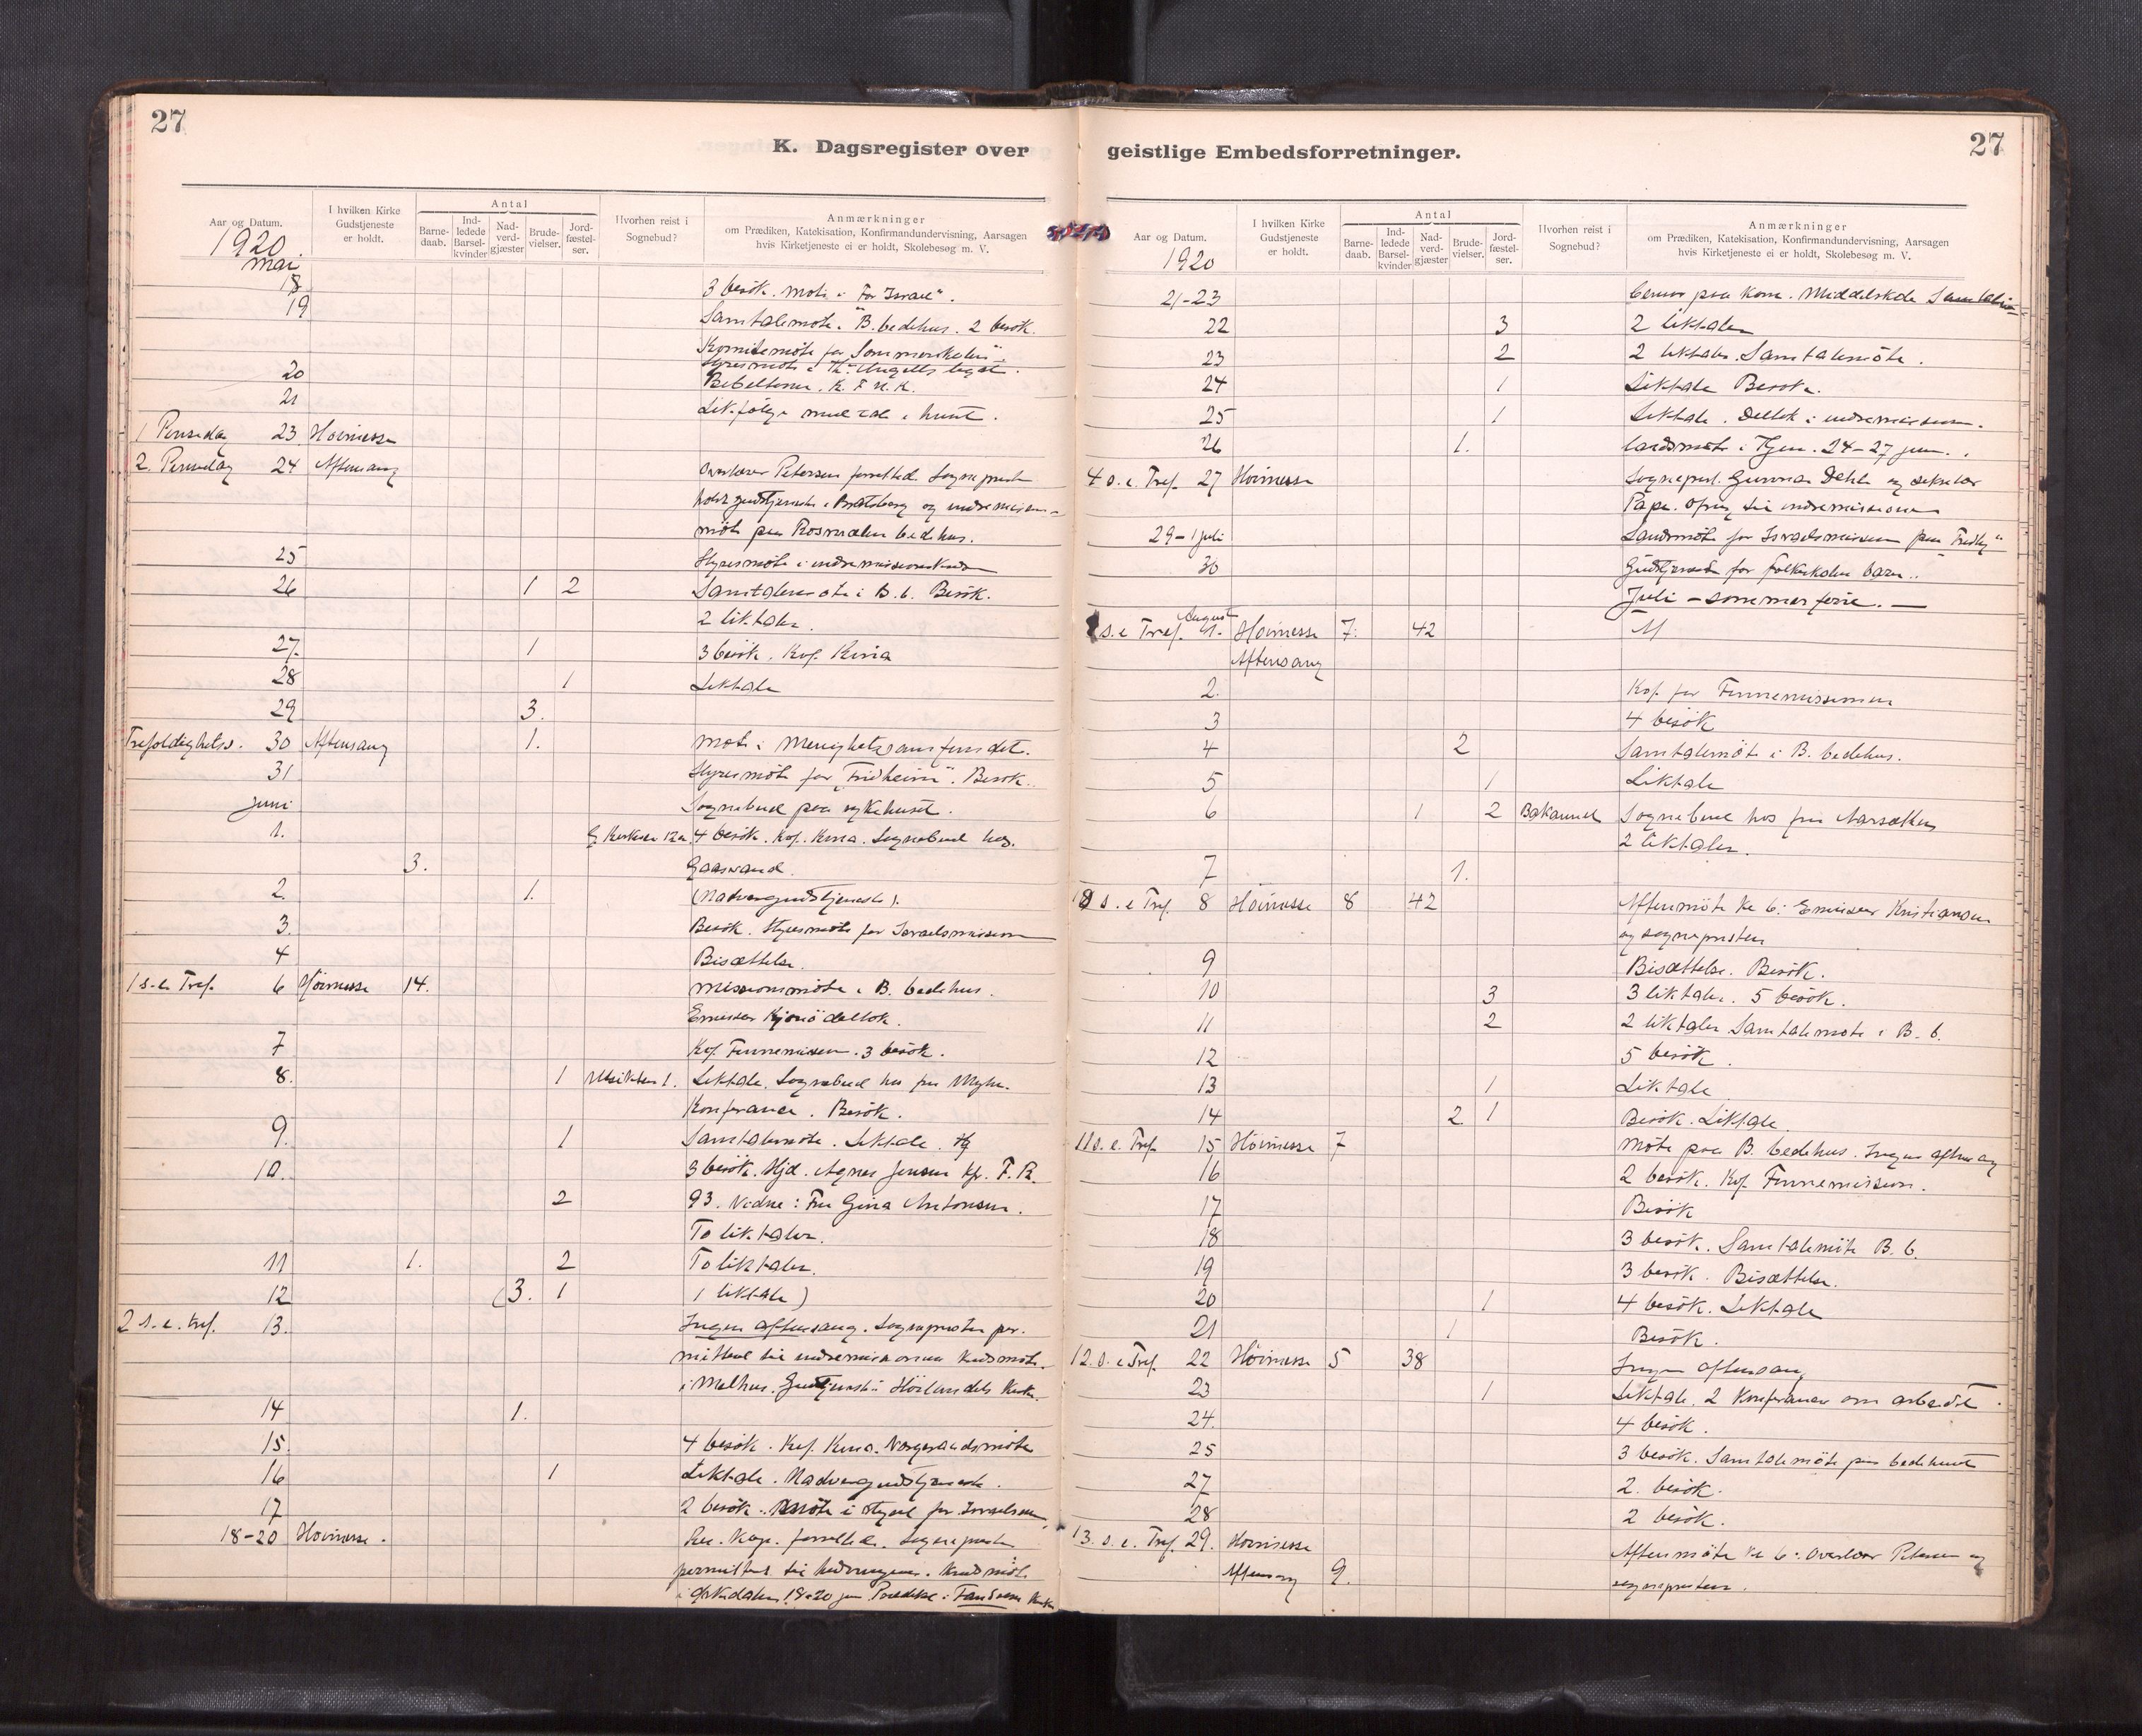 27
K. Dagsregister over
Aar og Datum.
I hvilken Kirke Gudstjeneste er holdt.
Antal
Barne-daab.
Ind-ledede Barsel-kvinder
Nad-verd-gjæster
Brude-vielser.
Jord-fæstel-ser.
Hvorhen reist i Sognebud?
Anmærkninger
om Prædiken, Katekisation, Konfirmandundervisning, Aarsagen
hvis Kirketjeneste ei er holdt, Skolebesøg m. V.
1920
mai
18 3 besök. Möte i "For Israel".
19 Samtalemöte i B. bedehus. 2 besök.
Komitemöte for Sommerskolen
20 Styresmöte i Th. Angells legat.
Bibeltime. K. F. U. K.
21 Likfölge med tale i huset.
1 Pinsedag 23 Höimesse
2. Pinsedag 24 Aftensang Overlærer Petersen forretted. Sogneprest
holdt gudstjeneste i Bratsberg og indremissions-
möte paa Rosendalen bedehus.
25 Styresmöte i indremissionskredsen
26 1 2 Samtalemöte i B. b. Besök.
2 liktaler.
27. 1 3 besök. Kof. Kina
28 1 Liktale
29 3.
Trefoldighetss. 30 Aftensang 1. Möte i Menighetssamfundet.
31 Styresmöte for "Fridheim". Besök.
juni Sognebud paa sykehuset.
1. 12a 4 besök. Kof. Kina. Sognebud hos
3. Gaaswand.
2. 1. (Nadvergudstjeneste).
3. Besök. Styresmöte for Israelsmissionen
4 Bisættelse.
1 s. e. Tref. 6 Höimesse 14. Missionsmöte i B. bedehus.
Emissær deltok.
7 Kof. Finnemission. 3 besök.
8. 1 Utsikten 1. Liktale. Sognebud hos fru Myhr.
Konferanse. Besök.
9. 1 Samtalemöte. Liktale.
10. 3 besök. Hjd. Agnes Jensen
2 93. Vidne: Fru Gina Antonsen.
To liktaler.
11 1. 2 To liktaler.
12 (3. 1 1 liktale)
2 s. e. tref. 13. Ingen aftensang. Sognepresten per-
mittert til indremissionens kredsmöte
i Melhus. Gudstjeneste i Höilandets Kirke.
14 1.
15. 4 besök. Kof. Kina. Vergeraadsmöte
16 1 Liktale. Nadvergudstjeneste.
17 2 besök. Möte i styret for Israelsm.
18-20 Höimesse. Res. Kap. forrettet. Sogneprest
permittert til hedningem. Kredsmöte
i Orkedalen 18-20 jun. Prædiket i Kirke
27
geistlige Embedsforretninger.
Aar og Datum.
I hvilken Kirke Gudstjeneste er holdt.
Antal
Barne-daab.
Ind-ledede Barsel-kvinder
Nad-verd-gjæster
Brude-vielser.
Jord-fæstel-ser.
Hvorhen reist i Sognebud?
Anmærkninger
om Prædiken, Katekisation, Konfirmandundervisning, Aarsagen
hvis Kirketjeneste ei er holdt, Skolebesøg m. V.
1920
21-23 Censor paa Kom. Middelskole
22 3 2 liktaler
23 2 2 liktaler. Samtalemöte.
24 1 Liktale Besök.
25 1 Liktale. Deltok i indremissionens
26 1. landsmöte i Thjem. 24-27 jun.
4 s. e. Tref. 27 Höimesse Sogneprest Gunnar Dehli og sekretær
Pape. Ofring til indremissionen
29-1 juli Landsmöte for Israelsmissionen paa "Fredly"
30 Gudstjeneste for folkeskolens barn.
Juli - sommerferie. -
s. e. Tref. August 1. Höimesse 7. 42
Aftensang
2. Kof. for Finnemissionen
3 4 besök
4 2 Samtalemöte i B. bedehus.
5 1 Liktale
6 1 2 Bakaunet Sognebud hos fru
2 liktaler.
7 1.
10 s. e Tref. 8 Höimesse 8 42 Aftenmöte kl 6: Emissær Kristiansen
og sognepresten
9 Bisættelse. Besök.
10 3 3 liktaler. 5 besök.
11 2 2 liktaler. Samtalemöte i B. b.
12 5 besök.
13 1 Liktale
14 2 1 Besök. Liktale.
11 s. e. Tref. 15 Höimesse 7 Möte paa B. bedehus. Ingen aftensang
16 2 besök. Kof. Finnemission.
17 Besök
18 3 besök. Samtalemöte B. b.
19 3 besök. Bisættelse.
20 1 4 besök. Liktale
21 1 Besök.
12. s. e Tref. 22 Höimesse 5 38 Ingen aftensang
23 1 Liktale. 2 Konferanser om arbeidet.
24. 4 besök.
25 3 besök. Samtalemöte paa bedehuset
27 2. besök.
28 2 besök.
13. s. e. Tref. 29. Höimesse Aftenmöte kl 6: Overlærer Petersen og
Aftensang 9. sognepresten.